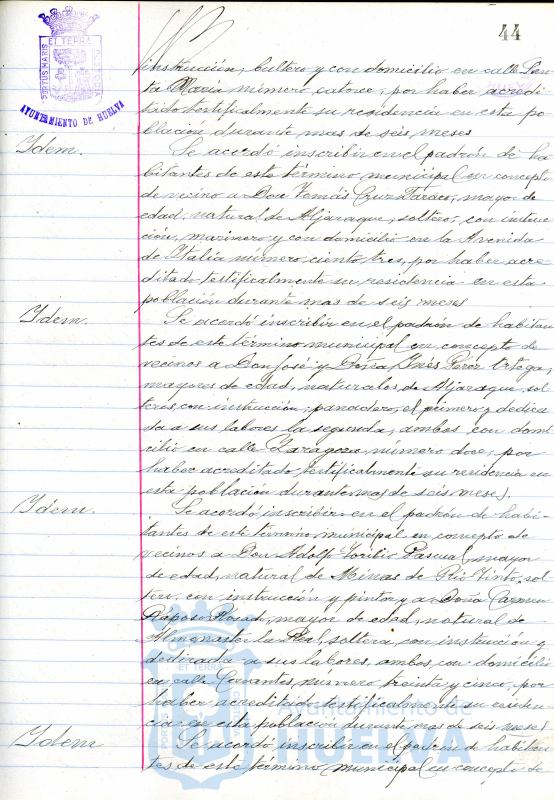 44
PORTUS MARIS
ET TERRÆ
CUSTODIA
AYUNTAMIENTO DE HUELVA
instrucción, soltero y con domicilio en calle San-
ta María número catorce, por haber acredi-
tado testificalmente su residencia en esta po-
blación durante mas de seis meses
Idem.
Se acordó inscribir en el padrón de ha-
bitantes de este término municipal en concepto
de vecino a Don Tomás Cruz mayor de
edad, natural de Aljaraque, soltero, con instruc-
ción, marinero y con domicilio en la Avenida
de Italia número ciento tres, por haber acre-
ditado testificalmente su residencia en esta
población durante mas de seis meses
Idem.
Se acordó inscribir en el padrón de habitan-
tes de este término municipal en concepto de
vecinos a Don José y Doña Inés Pérez Ortega,
mayores de edad, naturales de Aljaraque, sol-
teros, con instrucción, panadero, el primero y dedica-
da a sus labores la segunda, ambos con domi-
cilio en calle Zaragoza, número doce, por
haber acreditado testificalmente su residencia en
esta población durante mas de seis meses.
Idem.
Se acordó inscribir en el padrón de habi-
tantes de este término municipal en concepto de
vecinos a Don Adolfo Toribio Pascual, mayor
de edad, natural de Minas de Rio Tinto, sol-
tero, con instrucción y pintor y a Doña Carmen
Raposo mayor de edad, natural de
Almonaster la Real, soltera, con instrucción y
dedicada a sus labores, ambos, con domicilio
en calle Cervantes, número treinta y cinco, por
haber acreditado testificalmente su residen-
cia en esta población durante mas de seis meses
Idem
Se acordó inscribir en el padrón de habitan-
tes de este término municipal en concepto de
ET TERRÆ
PORTUS MARIS
Ayuntamiento de
HUELVA